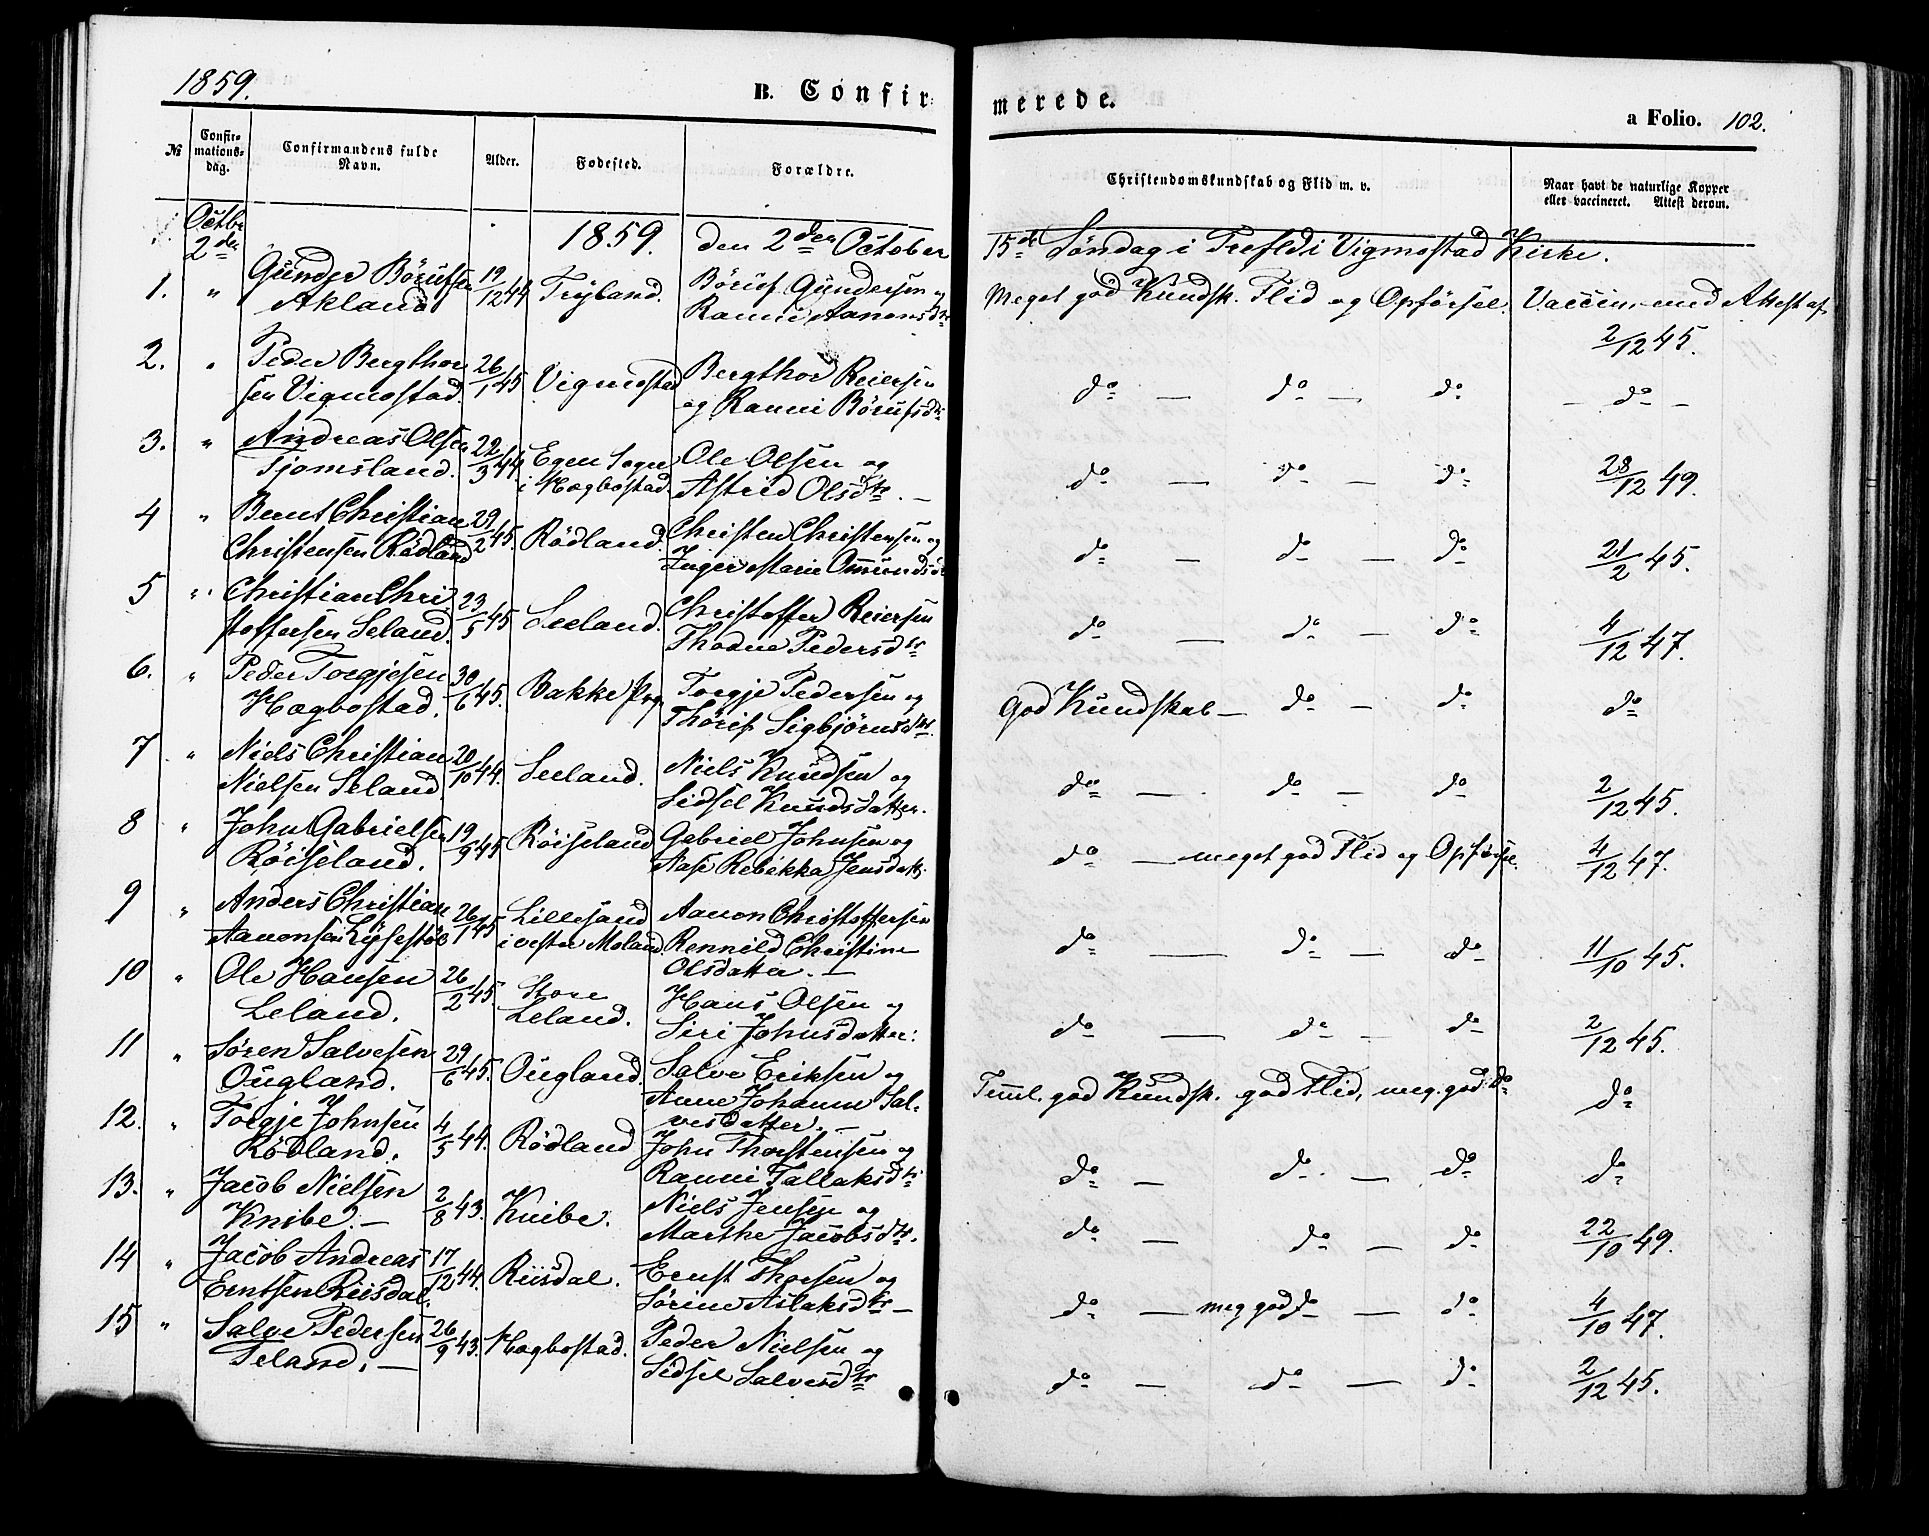 1859.
B. Confir-
merede.
a Folio. 102.
№
Confir-
mations-
dag.
Confirmandens fulde
Navn.
Alder.
Fødested.
Forældre.
Christendomskundskab og Flid m. v.
Naar havt de naturlige Kopper
eller vaccineret. Attest derom.
Octbr
2den
1859. den 2den October
15de Søndag i Trefld i Vigmostad Kirke.
1. " Gunder Börufsen 19/12 44 Tryland. Böruf Gundersen og Meget god Kundsk. Flid og Opførsel. Vaccin. med Attest af
Akland Ranni Aanensdtr 2/12 45.
2. " Peder Bergthor 26/1 45 Vigmostad Bergthor Reiersen do — do — do — do —
sen Vigmostad. og Ranni Börufsdtr
3. " Andreas Olsen 22/3 44 Egen Sogn Ole Olsen og do — do — do 28/12 49.
Tjomsland. i Hægbostad. Astrid Olsdtr. —
4 " Bernt Christian 29/2 45. Rödland. Christen Christensen og do — do — do 21/2 45.
Christensen Rödland Inger Marie Omundsdtr
5 " Christian Chri 23/5 45 Seeland. Christoffer Reiersen do — do — do 4/12 47.
stoffersen Seland. Thodne Pedersdtr
6. " Peder Torgjesen 30/6 45. Bakke Prg. Torgje Pedersen og God Kundskab — do — do do
Hægbostad. Thörif Sigbjörnsdtr.
7 " Niels Christian 20/10 44. Seeland. Niels Knudsen og do — do — do 2/12 45.
Nielsen Seland Sidsel Knudsdatter.
8 " John Gabrielsen 19/9 45 Röiseland Gabriel Johnsen og do — meget god Flid og Opførsel. 4/12 47.
Röiseland. Aase Rebekka Jensdatr.
9 " Anders Christian 26/1 45 Lillesand Aanon Christoffersen do — do — do 11/10 45.
Aanonsen i vester Moland. Rennild Christine
Olsdatter. —
10 " Ole Hansen 26/2 45. Store Hans Olsen og do — do — do 2/12 45.
Leland. Leland. Siri Johnsdatter.
11 " Sören Salvesen 29/6 45. Ougland. Salve Eriksen og Teml. god Kundsk. god Flid, meg. god do do
Ougland. Anne Johanne Sal-
vesdatter. —
12. " Torgje Johnsen 4/5 44. Rödland John Thorstensen og do — do — do do
Rödland. Ranni Tallaksdtr
13. " Jacob Nielsen 2/8 43. Knibe. Niels Jensen og do — do — do 22/10 49.
Knibe. — Marthe Jacobsdtr.
14 " Jacob Andreas 17/12 44. Riisdal. Ernst Thorsen og do — meg god do — do 4/10 47.
Erntsen Riisdal. Sörine Aslaksdtr —
15 " Salve Pedersen 26/9 43. Hægbostad. Peder Nielsen og do — do — do 2/12 45.
Seland. — Sidsel Salvesdtr